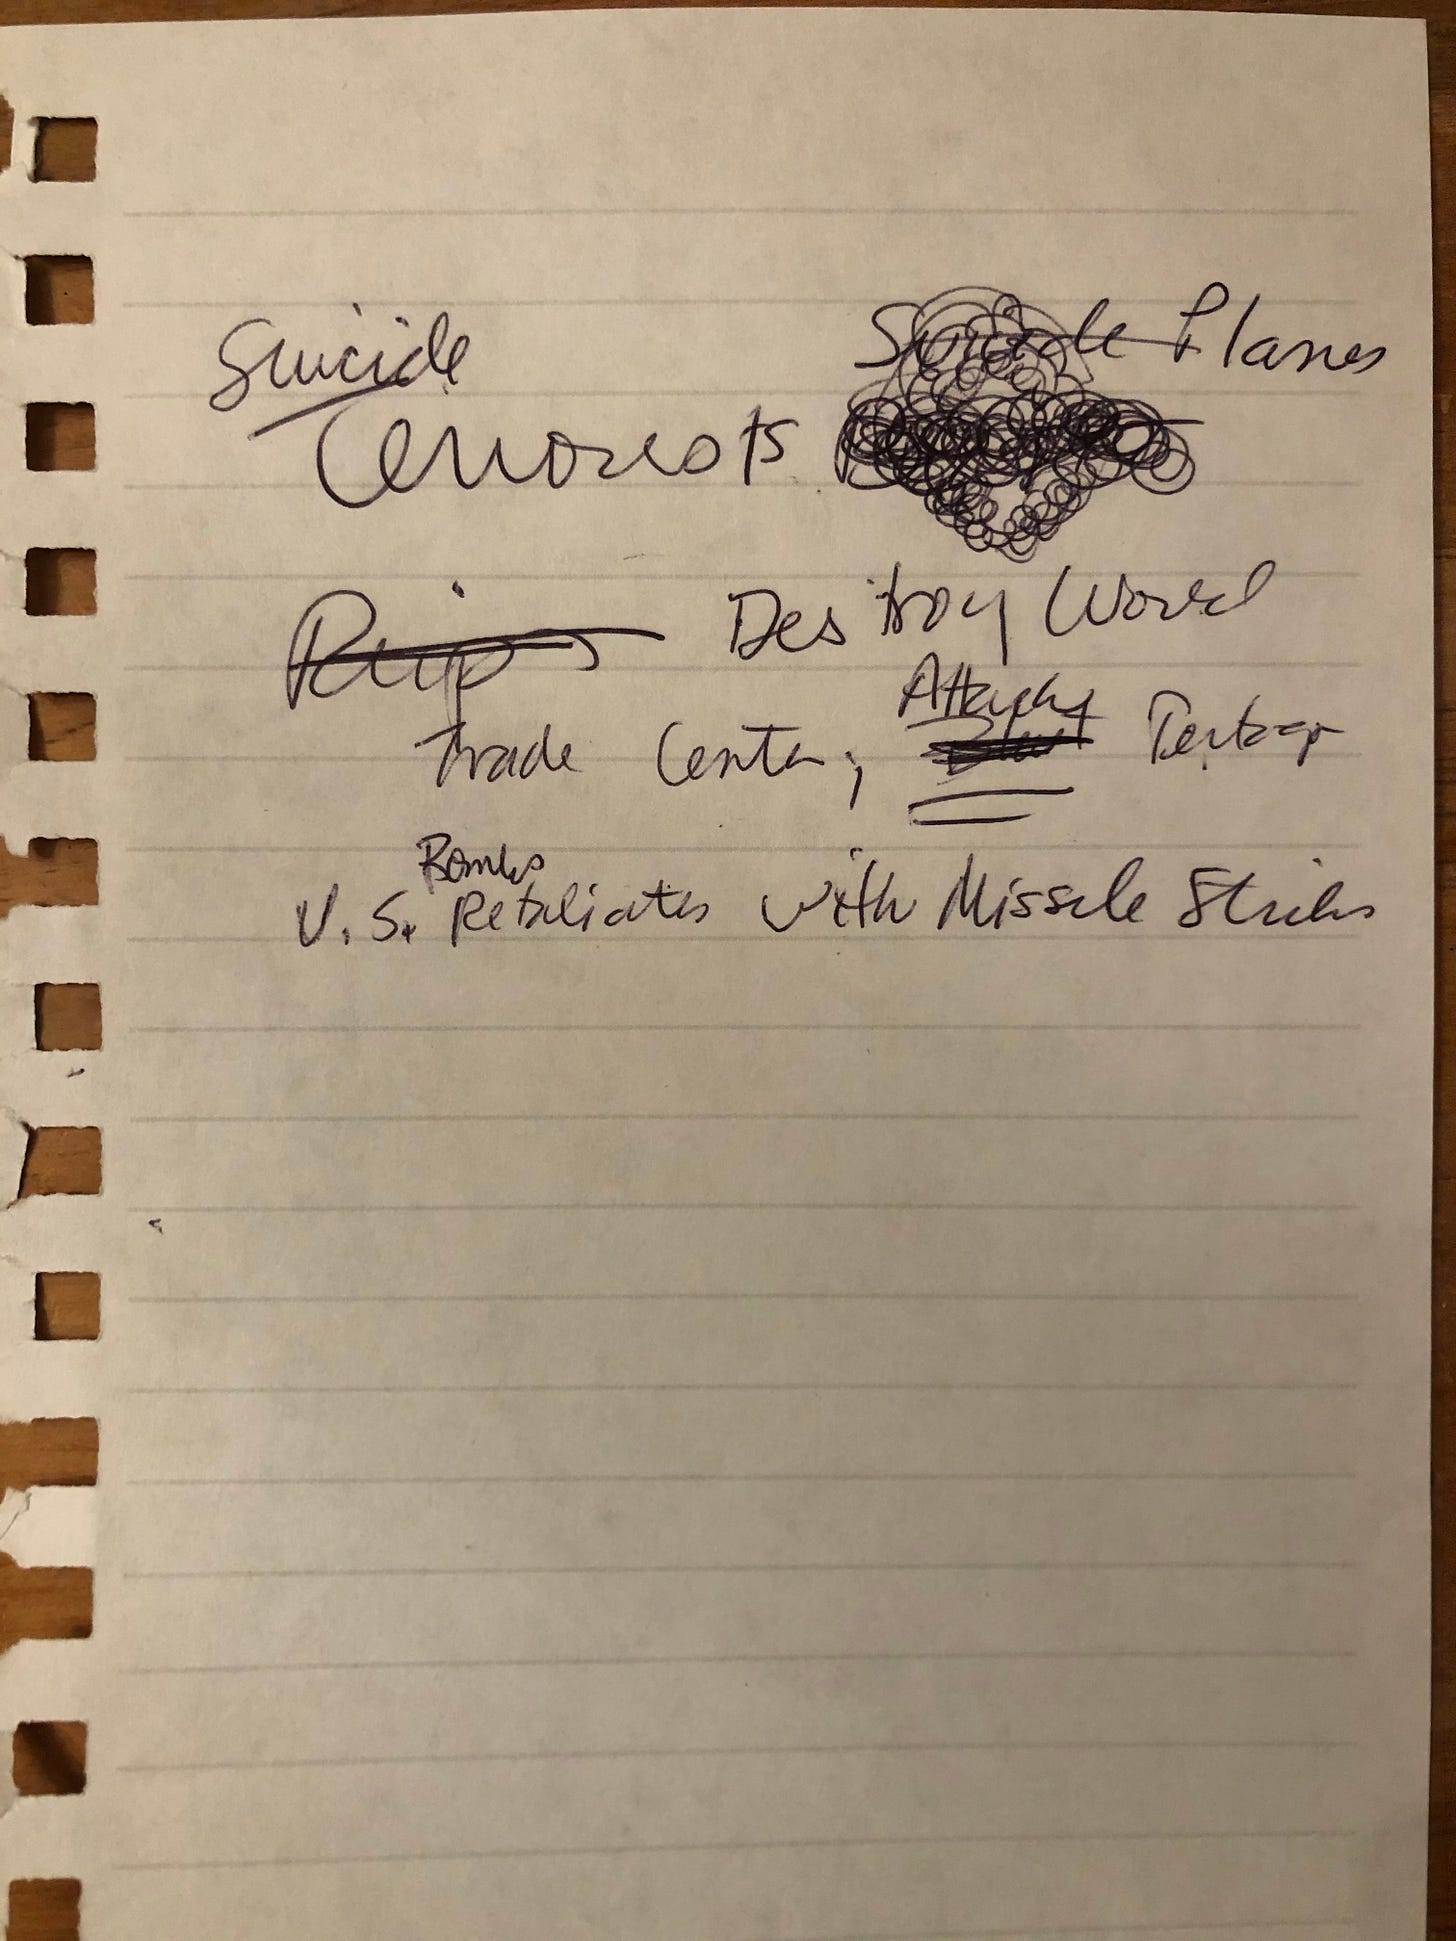 Suicide Suicide Planes
Terrorists
Destroy World
Attacks
Trade Center, Pentagon
Bombs
U.S. Retaliates with Missile Strikes